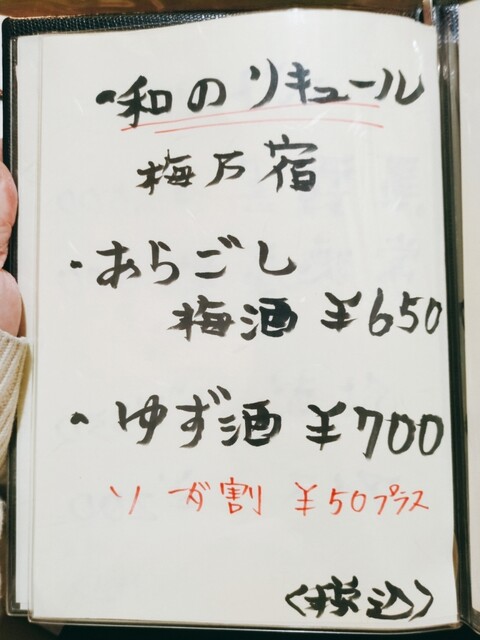 ・和のリキュール
梅乃宿
・あらごし
梅酒 ¥650
・ゆず酒 ¥700
ソーダ割 ¥50プラス
〈税込〉